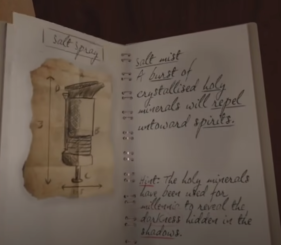 salt spray
salt mist
A burst of
crystallised holy
minerals will repel
untoward spirits.
The holy minerals
have been used for
millennia to reveal the
darkness hidden in the
shadows.